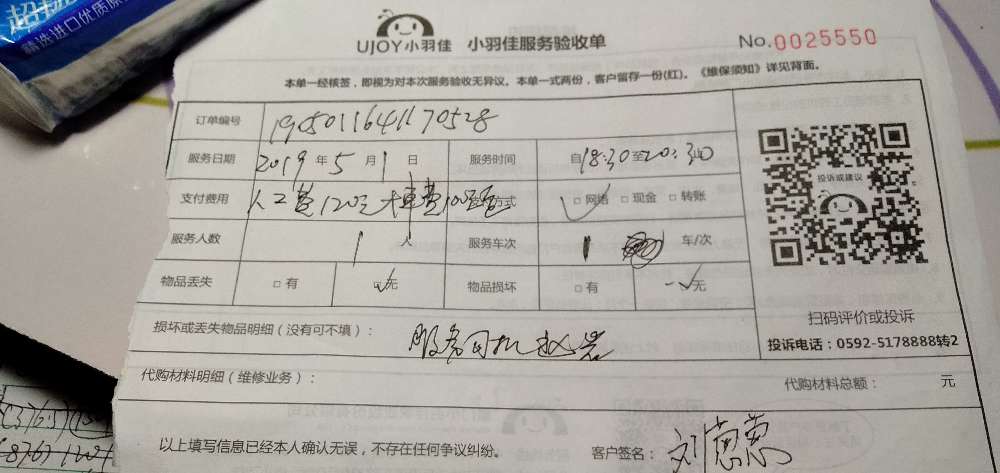 精选进口优质原
UJOY小羽佳 小羽佳服务验收单 No.0025550
本单一经核签，即视为对本次服务验收无异议。本单一式两份，客户留存一份(红)。《维保须知》详见背面。
订单编号 1905011641170528
服务日期 2019年5月1日 服务时间 自18:30至20:30
支付费用 人工费120元 车费100元 方式 ☑网络 □现金 □转账
服务人数 1人 服务车次 1 车/次
物品丢失 □有 ☑无 物品损坏 □有 ☑无
损坏或丢失物品明细（没有可不填）： 服务司机
代购材料明细（维修业务）： 代购材料总额： 元
以上填写信息已经本人确认无误，不存在任何争议纠纷。 客户签名：刘
投诉或建议
扫码评价或投诉
投诉电话：0592-5178888转2